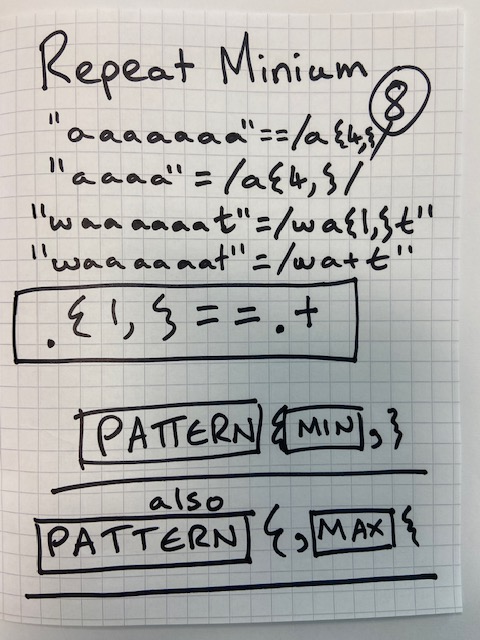 Repeat Minium
8
"aaaaaaa"==/a{4,{/
"aaaa"=/a{4,}/
"waaaaaat"=/wa{1,}t"
"waaaaaat"=/wa+t"
.{1,}==.+
PATTERN{MIN,}
also
PATTERN{,MAX{